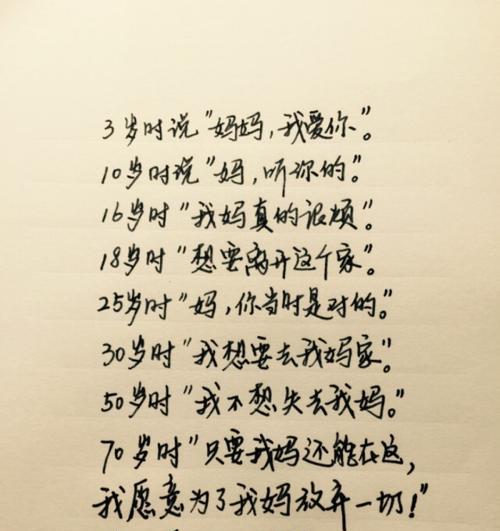 3岁时说"妈妈,我爱你"。
10岁时说"妈,听你的"。
16岁时"我妈真的很烦"。
18岁时"想要离开这个家"。
25岁时"妈,你当时是对的。"
30岁时"我想要去我妈家"。
50岁时"我不想失去我妈。"
70岁时"只要我妈还能在这,
我愿意为了我妈放弃一切!"